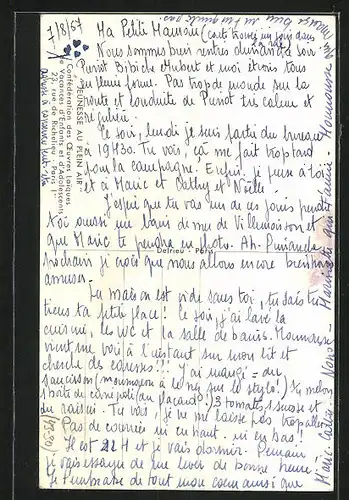 7/8/57
Ma Petite Maman
Nous sommes bien rentrés dimanche soir.
Puriot Bibiche Hubert et moi étions tous
en pleine forme. Pas trop de monde sur la
route et conduite de Puriot très calme et
régulière.
Ce soir, lundi je suis parti du bureau
à 19H30. Tu vois, ça me fait trop tard
pour la campagne. Enfin, je pense à toi
et à Marie et Cathy et Noëlle.
J'espère que tu vas un de ces jours prendre
toi aussi un bain de mer
que Marie te prendra en photo. Ah.
prochain je crois que nous allons encore bien nous
amuser.
La maison est vide sans toi, tu sais tu
tiens ta petite place! Ce soir, j'ai lavé la
cuisine, les WC et la salle de bains. Moumousse
vient me voir à l'instant sur mon lit et
cherche des caresses!!! J'ai mangé du
saucisson (Moumousse a le nez sur le stylo!) du melon
(au placard!) 3 tomates, 1 suisse et
du raisin. Tu vois, je ne me laisse pas
Pas de courrier ni en haut ni en bas!
Il est 22H et je vais dormir. Demain
je vais essayer de me lever de bonne heure
Je t'embrasse de tout mon cœur ainsi que
"JEUNESSE AU PLEIN AIR"
Confédération des Œuvres Laïques
de Vacances d'Enfants et d'Adolescents
22, rue de Richelieu - Paris 1er
Delrieu - Paris